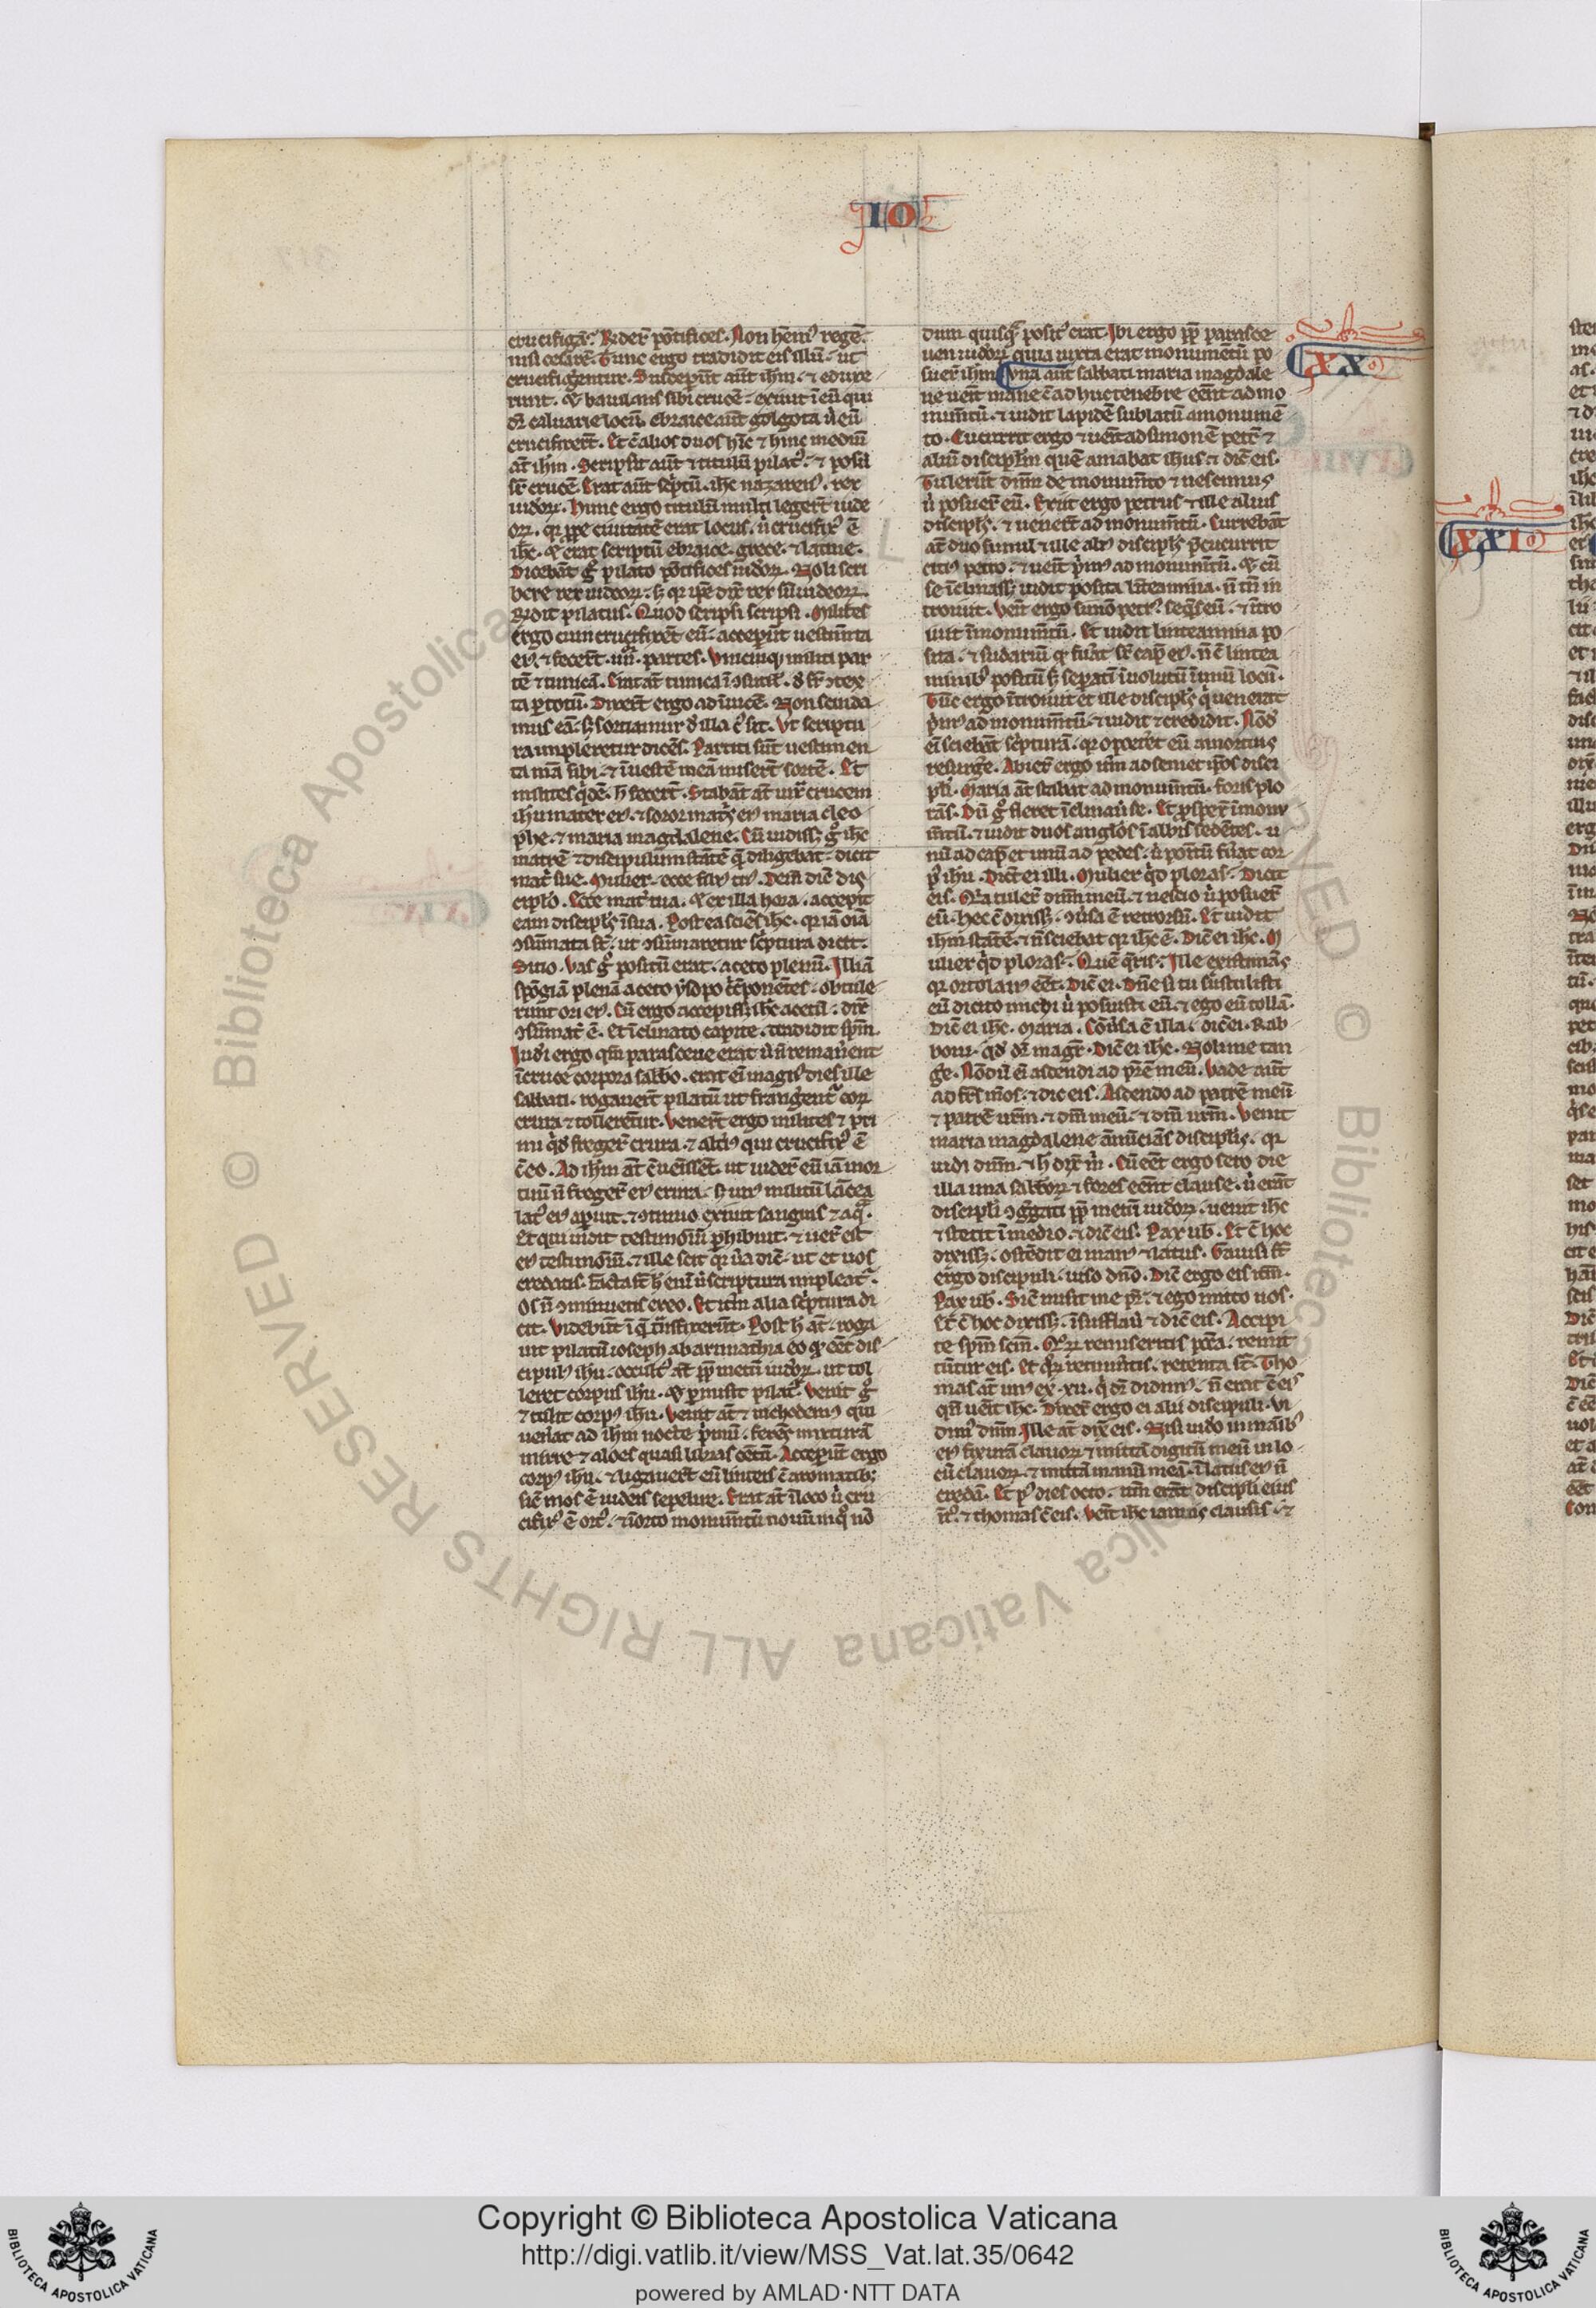 IO
crucifigā. Rn̄der̄ pōtifices. Non hēm9 regē
nisi cesarē. Tunc ergo tradidit eis illū. ut
crucifigentur. Susceperūt aūt ih̄m. ⁊ eduxe
runt. Et baiulans sibi crucē. exiuit ī eū qui
dr̄ caluarie locū. ebraice aūt golgota ù eū
crucifixert̄. Et c̄ alios duos hīc ⁊ hinc mediū
at̄ ih̄m. Scripsit aūt ⁊ titulū pilat9. ⁊ posu
sr̄ crucē. Erat aūt sc̄ptū. ih̄c nazaren9. rex
iudeoꝝ. Hunc ergo titulū multi legert̄ iude
oꝝ. qr ꝓpe ciuitatē erat locus. ù crucifix9 ē
ih̄c. Et erat scriptū ebraice. grece. ⁊ latine.
Dicebāt gͦ pilato pōtifices iudeoꝝ. Noli scri
bere rex iudeoꝝ. sꝫ qr ip̄e dix̄ rex sū iudeoꝝ.
Rn̄dit pilatus. Quod scripsi scripsi. Milites
ergo cum crucifixert̄ eū. acceperūt uestimt̄a
ei9. ⁊ fecert̄. iiii. partes. Vnicuiqꝫ militi par
tē ⁊ tunicā. Erat at̄ tunica ī ꝯsutil. d' sr̄ ꝯtex
ta ꝑ totū. Dixert̄ ergo ad īuicē. Non scinda
mus eā. sꝫ sortiamur d' illa c9 sit. Vt scriptu
ra impleretur dicēs. Partiti sūt uestimen
ta mā sibi. ⁊ ī uestē meā misert̄ sortē. Et
milites qͥdē. h̄ fecert̄. Stabāt at̄ iux̄ crucem
ih̄u mater ei9. ⁊ soror mat̄s ei9 maria cleo
phe. ⁊ maria magdalene. Cū uidissꝫ gͦ ih̄c
matrē ⁊ discipulum stātē q̄ diligebat. dicit
mat̄ sue. Mulier. ecce fili9 tu9. Dein̄ dic̄ dis
cipło. Ecce mat̄ tua. Et ex illa hora. accepit
eam discipłs ī sua. Postea sciēs ih̄c. qr iā oīa
ꝯsūmata st̄. ut ꝯsūmaretur sc̄ptura dicit.
Sitio. Vas gͦ positū erat. aceto plenū. Illi at̄
spōgiā plenā aceto ysopo c̄cūponētes. obtule
runt ori ei9. Cū ergo accepissꝫ ih̄c acetū. dix̄
ꝯsūmat̄ ē. Et īclinato capite. tradidit sp̄m.
Iud'i ergo qm̄ parasceue erat ù n̄ remanerent
ī cruce corpora sabbo. erat ei magn9 dies ille
sabbati. rogauert̄ pilatū ut frangent̄ eoꝝ
crura ⁊ tollerētur. Venert̄ ergo milites ⁊ pri
mi qͥd' fregert̄ crura. ⁊ alt̄i9 qui crucifix9 ē
c̄ eo. Ad ih̄m at̄ c̄ uēissēt. ut uidert̄ eū iā mor
tuū n̄ fregert̄ ei9 crura. sꝫ un9 militū lācea
lat9 ei9 aperuit. ⁊ ꝯtinuo exiuit sanguis ⁊ aq̄.
Et qui uidit testimoīū ꝑhibuit. ⁊ uer̄ est
ei9 testimoīū. ⁊ ille scit qr ùa dic̄. ut et uos
credatis. Facta st̄ h̄ eni ù scriptura impleat̄.
Os n̄ ꝯminuetis ex eo. Et it̄m alia sc̄ptura di
cit. Videbūt ī q̄ trāsfixerūt. Post h̄ at̄. roga
uit pilatū ioseph ab arimathia eo qd' eēt dis
cipul9 ih̄u. occult9 at̄ ꝓp̄ metū iudeoꝝ. ut tol
leret corpus ih̄u. Et ꝑmisit pilat9. Venit gͦ
⁊ tulit corp9 ih̄u. Venit at̄ ⁊ nichodem9 qui
uenat̄ ad ih̄m nocte pͥmū. ferēs mixturā
mirre ⁊ aloes quasi libras cētū. Acceperūt ergo
corp9 ih̄u. ⁊ ligauert̄ eū linteis c̄ aromatibꝫ
sic̄ mos ē iudeis sepelire. Erat at̄ ī loco ù cru
cifix9 ē ort9. ⁊ ī orto monumt̄ū nouū in qͦ nō
dum quisqͣ posit9 erat. Ibi ergo ꝓp̄ parasce
uen iudeoꝝ quia iuxta erat monumētū po
suert̄ ih̄m. Vna aūt sabbati maria magdale
ne ueīt mane c̄ adhuc tenebre eēnt ad mo
numt̄ū. ⁊ uidit lapidē sublatū a monumē
to. Cucurrit ergo ⁊ ueīt ad simonē petr̄ ⁊
aliū discipłm quē amabat ih̄us ⁊ dic̄ eis.
Tulerūt dn̄m de monumt̄o ⁊ nescimus
ù posuert̄ eū. Exiit ergo petrus ⁊ ille alius
discipłs. ⁊ uenert̄ ad monumt̄ū. Currebāt
at̄ duo simul ⁊ ille ali9 discipłs p̄cucurrit
citi9 petro. ⁊ ueīt pͥm9 ad monumt̄ū. Et cū
se īclinassꝫ uidit posita linteamina. n̄ tn̄ in
troiuit. Ven̄ ergo simō petr9 seq̄s eū. ⁊ ītro
iuit ī monumt̄ū. Et uidit linteamina po
sita. ⁊ sudariū qd' fuat̄ sr̄ cap̄ ei9. n̄ c̄ lintea
minibꝫ positū sꝫ separatī īuolutū ī unū locū.
Tūc ergo ītroiuit et ille discipłs q̄ uenerat
pͥm9 ad monumt̄ū. ⁊ uidit ⁊ credidit. Nōd'
ei sciebāt sc̄pturā. qr oporēt eū a mortuis
resurge. Abiert̄ ergo it̄m ad semetip̄os disci
płi. Maria at̄ stabat ad monumt̄ū. foris plo
rās. Dū gͦ fleret īclinaù se. Et ꝓspex̄ ī monu
mt̄ū. ⁊ uidit duos angłos ī albis sedētes. u
nū ad cap̄ et unū ad pedes. ù positū fuat̄ cor
p9 ih̄u. Dicūt ei illi. Mulier qͥd ploras. Dicit
eis. Qr tulert̄ dn̄m meū. ⁊ nescio ù posuert̄
eū. Hec c̄ dixissꝫ. ꝯùsa ē retrorsū. Et uidit
ih̄m stātē. ⁊ n̄ sciebat qr ih̄c ē. Dic̄ ei ih̄c. M
ulier qͥd ploras. Quē q̄ris. Ille existimās
qr ortolan9 eēt. Dic̄ ei. Dn̄e si tu sustulisti
eū dicito michi ù posuisti eū. ⁊ ego eū tollā.
Dic̄ ei ih̄c. Maria. Cōùsa ē illa. dic̄ ei. Rab
boni. qd' dr̄ magr̄. Dic̄ ei ih̄c. Noli me tan
ge. Nōdū ei ascendi ad pr̄ē meū. Vade aūt
ad fr̄s m̄os. ⁊ dic eis. Ascendo ad patrē meū
⁊ patrē ur̄m. ⁊ dm̄ meū. ⁊ dm̄ ur̄m. Venit
maria magdalene ānūciās discipłis. qr
uidi dn̄m. ⁊ h̄ dix̄ m̄. Cū eēt ergo sero die
illa una sabboꝝ ⁊ fores eēnt clause. ù erāt
discipłi ꝯḡgati ꝓp̄ metū iudeoꝝ. uenit ih̄c
⁊ stetit ī medio. ⁊ dic̄ eis. Pax ub̄. Et c̄ hoc
dixissꝫ. ostēdit ei man9 ⁊ latus. Gauisi st̄
ergo discipuli. uiso dn̄o. Dic̄ ergo eis it̄m.
Pax ub̄. Sic̄ misit me pr̄. ⁊ ego mitto uos.
Et c̄ hoc dixissꝫ. īsufflaù ⁊ dic̄ eis. Accipi
te sp̄m sc̄m. Qꝝ remiseritis pc̄ta. remit
tūtur eis. Et qꝝ retinuītis. retenta st̄. Tho
mas at̄ un9 ex. xii. q̄ dr̄ didim9. n̄ erat c̄ eis
qn̄ uēit ih̄c. Dixert̄ ergo ei alii discipuli. Vi
dim9 dn̄m. Ille at̄ dix̄ eis. Nisi uid'o in māibꝫ
ei9 fixurā clauoꝝ ⁊ mittā digitū meū in lo
cū clauoꝝ. ⁊ mittā manū meā. ī latus ei9 n̄
credā. Et p9 dies octo. it̄m erāt discipłi eius
īt9. ⁊ thomas c̄ eis. Veīt ih̄c ianuis clausis. ⁊
XX
XXI
Copyright © Biblioteca Apostolica Vaticana
http://digi.vatlib.it/view/MSS_Vat.lat.35/0642
powered by AMLAD·NTT DATA
BIBLIOTECA APOSTOLICA VATICANA
BIBLIOTECA APOSTOLICA VATICANA
© Biblioteca Apostolica Vaticana ALL RIGHTS RESERVED